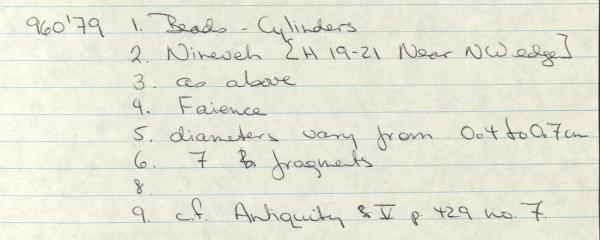 960'79 1. Beads - Cylinders
2. Nineveh [H 19-21 Near NW edge]
3. as above
4. Faience
5. diameters vary from 0.4 to 0.7cm
6. 7 fragments
8.
9. c.f. Antiquity V p. 429 no. 7.